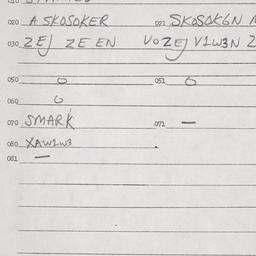 020 A SKOSOKER 021 SKOSOKGN
030 ZEJ ZE EN VOZEJ V1W3N Z
050 0 051 0
060 0
070 SMARK 071 —
080 XAW1W3
081 —